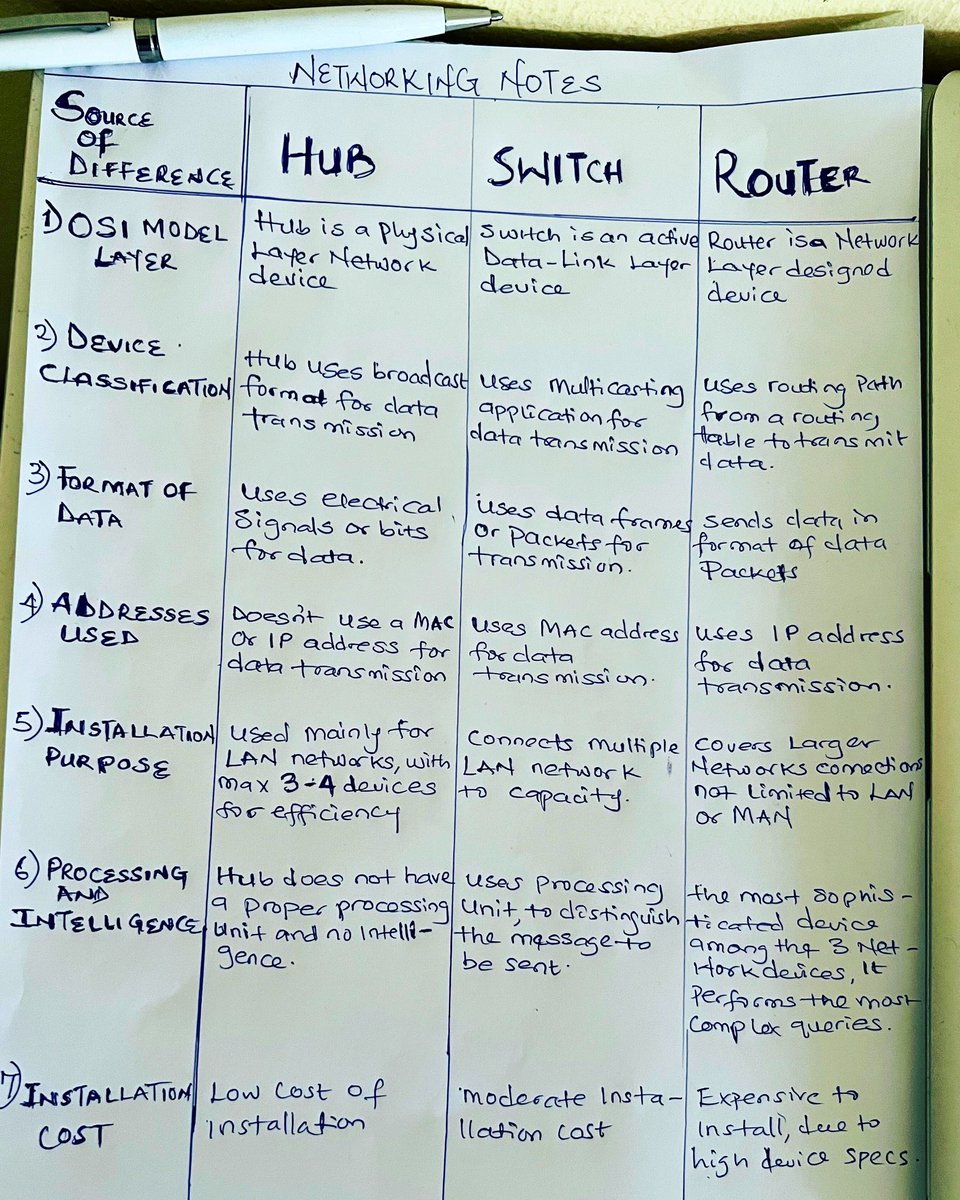 NETWORKING NOTES
SOURCE
OF
DIFFERENCE
HUB
SWITCH
ROUTER
1) OSI MODEL
LAYER
Hub is a physical
Layer Network
device
Switch is an active
Data-Link Layer
device
Router is a Network
Layer designed
device
2) DEVICE
CLASSIFICATION
Hub uses broadcast
format for data
transmission
uses multicasting
application for
data transmission
uses routing Path
from a routing
table to transmit
data.
3) FORMAT OF
DATA
uses electrical
Signals or bits
for data.
uses data frames
or packets for
transmission.
sends data in
format of data
Packets
4) ADDRESSES
USED
Doesn't use a MAC
or IP address for
data transmission
uses MAC address
for data
transmission.
uses IP address
for data
transmission.
5) INSTALLATION
PURPOSE
used mainly for
LAN networks, with
max 3-4 devices
for efficiency
Connects multiple
LAN network
to capacity.
Covers Larger
Networks connections
not limited to LAN
or MAN
6) PROCESSING
AND
INTELLIGENCE
Hub does not have
a proper processing
unit and no intelli-
gence.
uses processing
unit, to distinguish
the message to
be sent.
the most sophis-
ticated device
among the 3 Net-
work devices, It
Performs the most
complex queries.
7) INSTALLATION
COST
Low cost of
installation
moderate Insta-
llation cost
Expensive to
install, due to
high device specs.